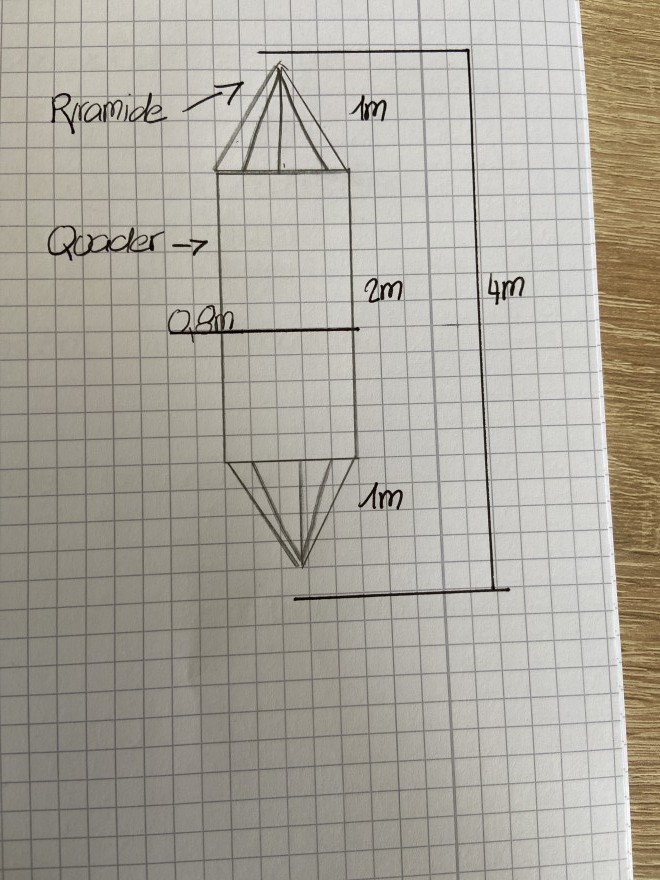 Pyramide
1m
Quader
2m
4m
0,8m
1m